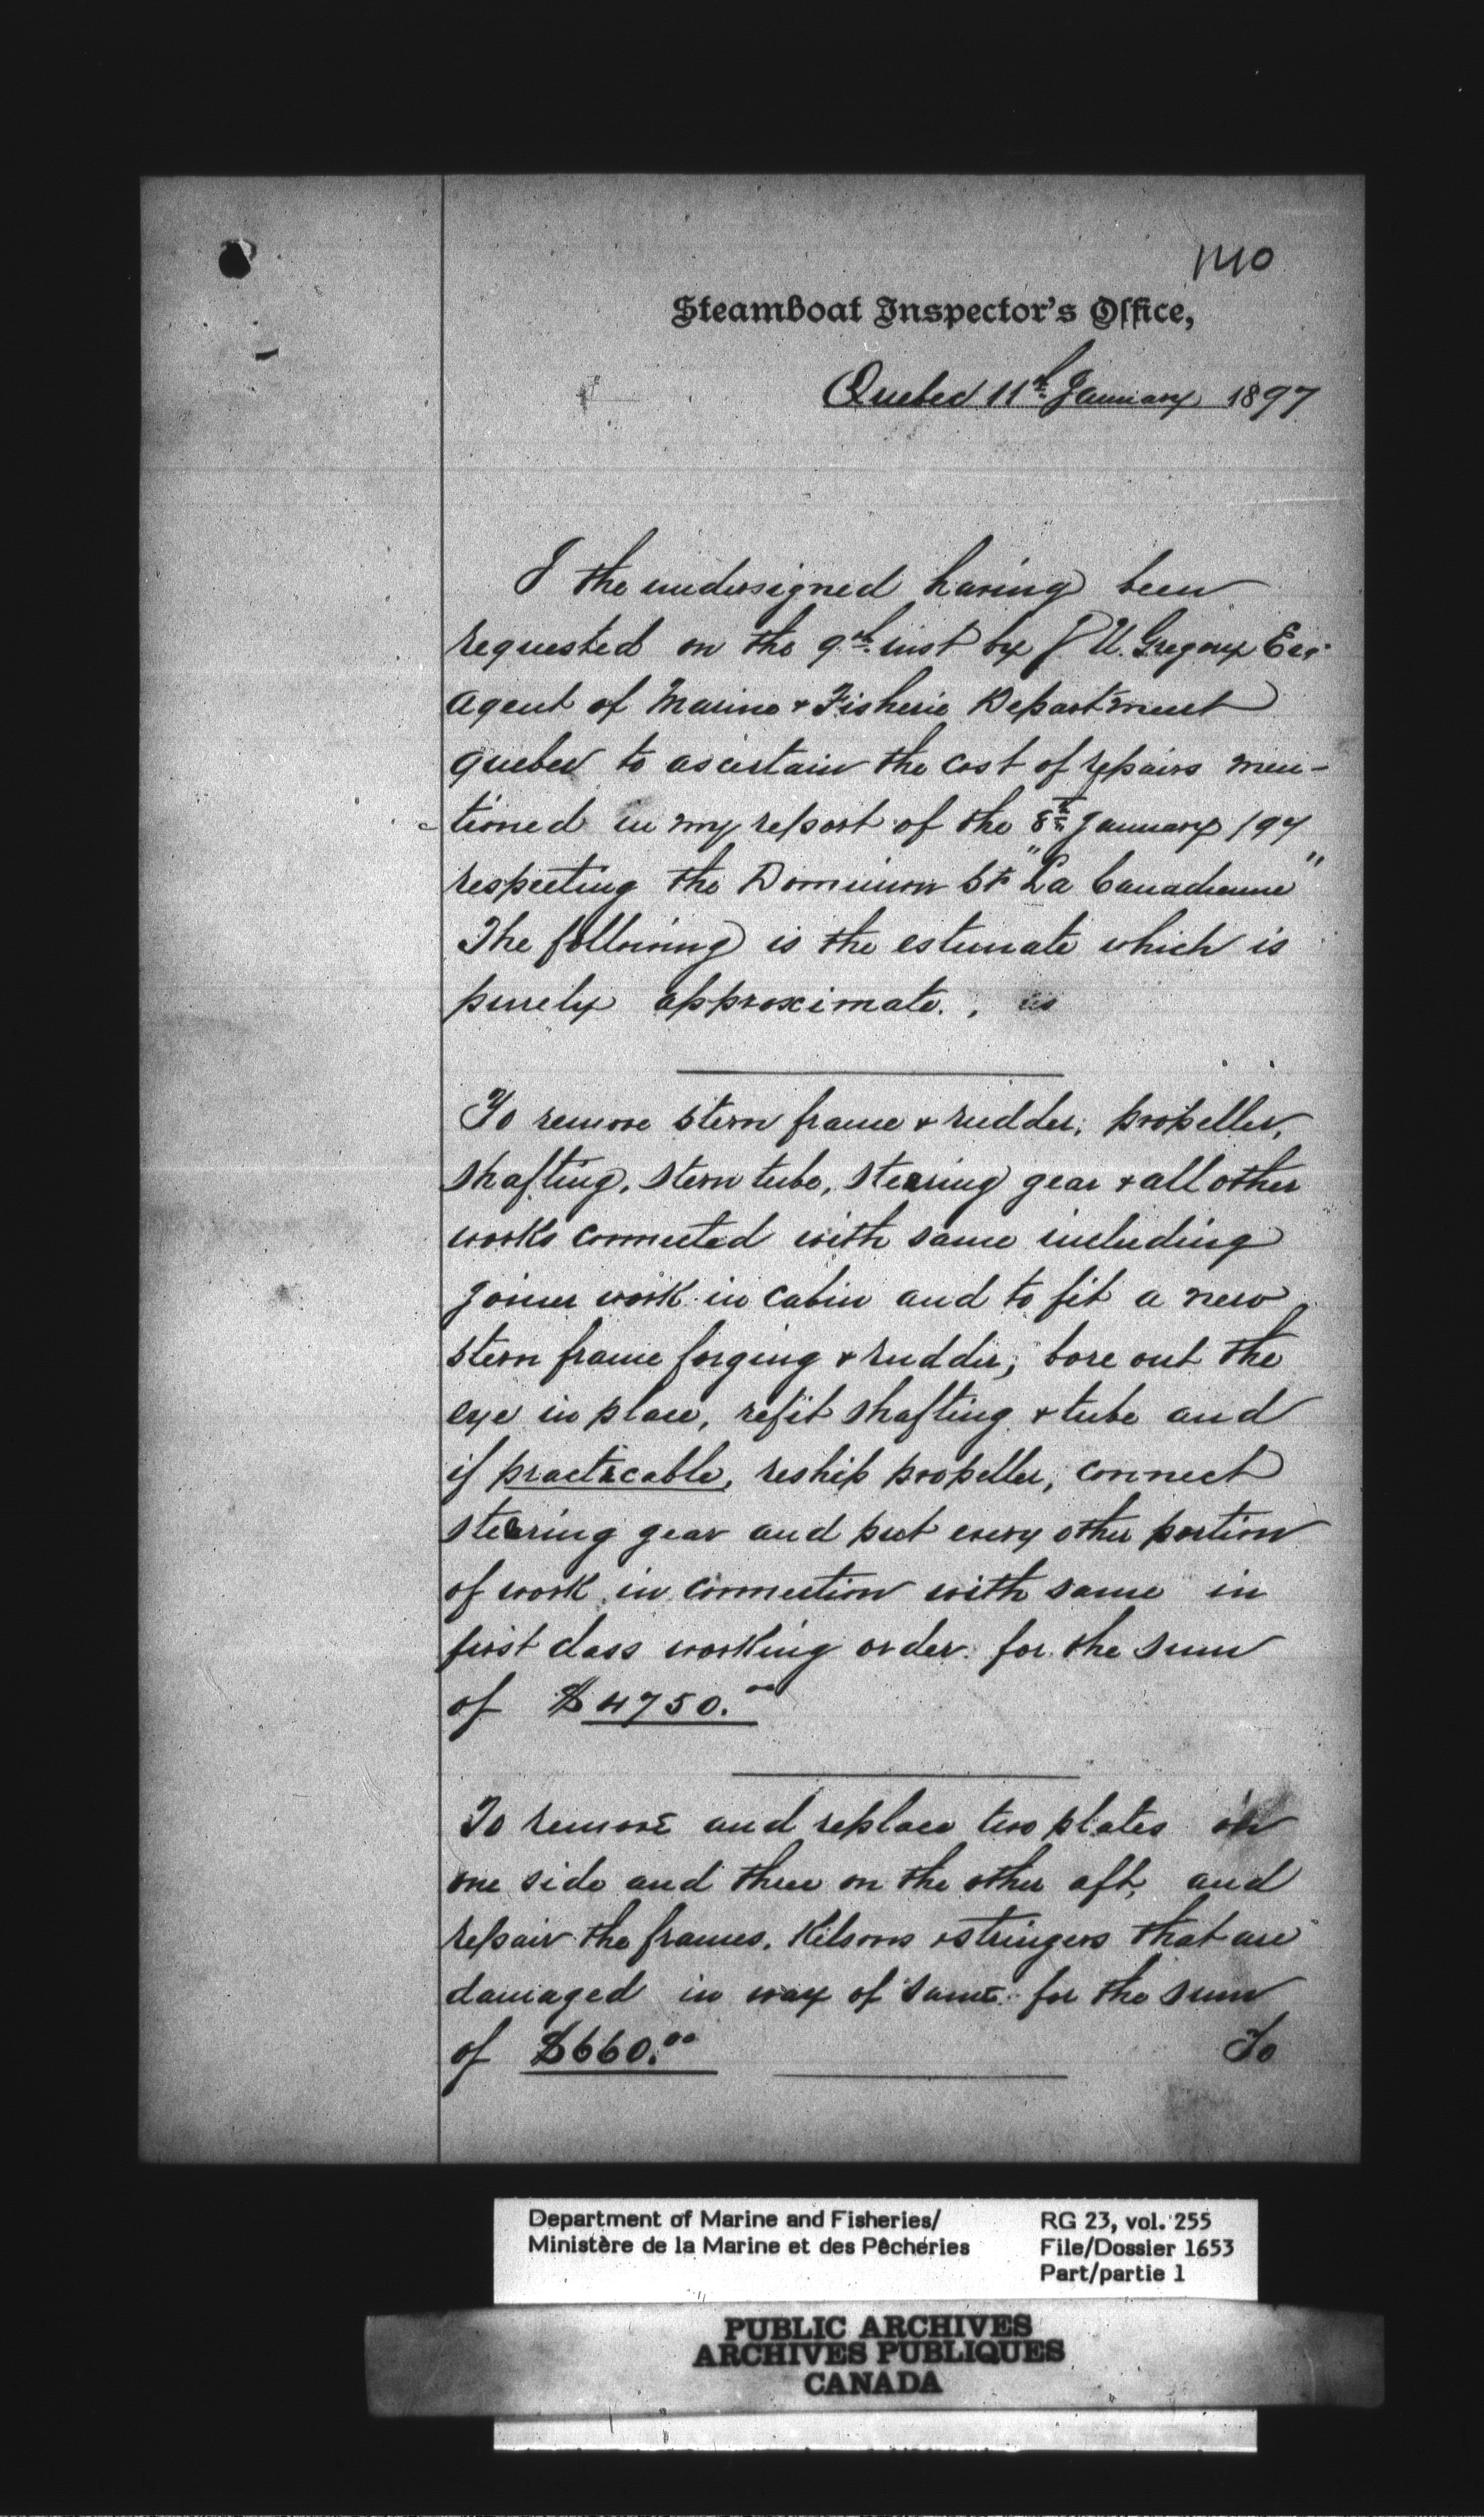 1410
Steamboat Inspector's Office,
Quebec 11th January 1897
I the undersigned having been
requested on the 9th inst by J. U. Gregory Esq.
Agent of Marine & Fisherie Department
Quebec to ascertain the cost of repairs men-
tioned in my report of the 8th January /97
respecting the Dominion Str "La Canadienne"
The following is the estimate which is
purely approximate.,
To remove stern frame & rudder, propeller,
shafting, stern tube, stearing gear & all other
works connected with same including
joiner work in cabin and to fit a new
stern frame forging & rudder; bore out the
eye in place, refit shafting & tube and
if practicable, reship propeller, connect
stearing gear and put every other portion
of work in connection with same in
first class working order for the sum
of $4750.00
To remove and replace two plates on
one side and three on the other aft, and
repair the frames, Kelsons & stringers that are
damaged in way of same for the sum
of $660.00
To
Department of Marine and Fisheries/
Ministère de la Marine et des Pêcheries
RG 23, vol. 255
File/Dossier 1653
Part/partie 1
PUBLIC ARCHIVES
ARCHIVES PUBLIQUES
CANADA